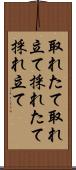 取れたて取れ
立て採れたて
採れ立て